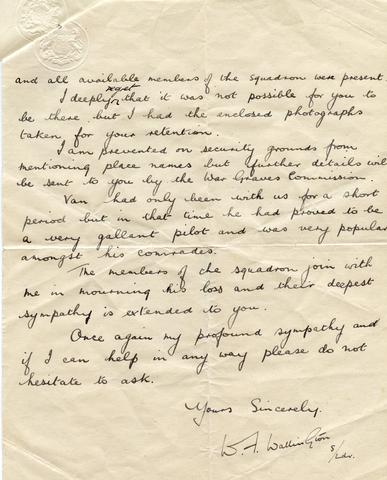 and all available members of the squadron were present
regret
I deeply that it was not possible for you to
be there but I had the enclosed photographs
taken for your retention.
I am prevented on security grounds from
mentioning place names but further details will
be sent to you by the War Graves Commission.
Van had only been with us for a short
period but in that time he had proved to be
a very gallant pilot and was very popular
amongst his comrades.
The members of the squadron join with
me in mourning his loss and their deepest
sympathy is extended to you.
Once again my profound sympathy and
if I can help in any way please do not
hesitate to ask.
Yours Sincerely.
W. A. Wallington
S/Ldr.